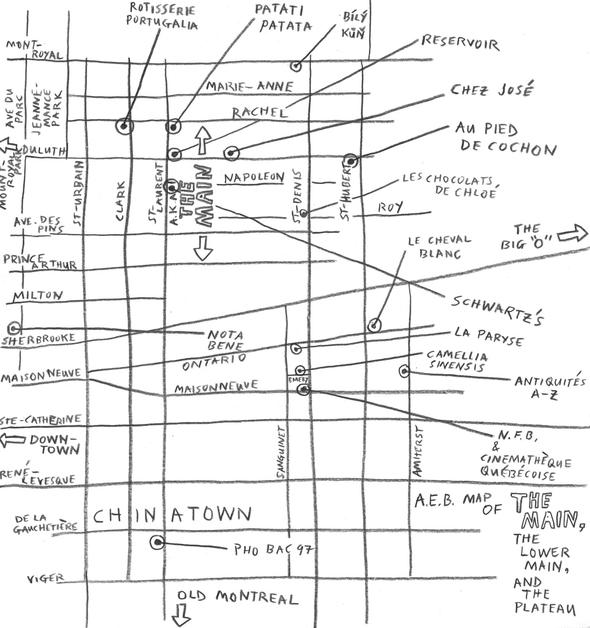 ROTISSERIE
PORTUGALIA
PATATI
PATATA
BÍLÝ
KŮŇ
RESERVOIR
CHEZ JOSÉ
AU PIED
DE COCHON
LES CHOCOLATS
DE CHLOÉ
MONT-
ROYAL
AVE DU
PARC
JEANNE-
MANCE
PARK
MARIE-ANNE
RACHEL
DULUTH
MOUNT
ROYAL
PARK
ST-URBAIN
CLARK
ST-
LAURENT
A.K.A.
THE
MAIN
NAPOLEON
ST-DENIS
ST-HUBERT
ROY
AVE. DES
PINS
LE CHEVAL
BLANC
THE
BIG "O"
PRINCE
ARTHUR
MILTON
SCHWARTZ'S
SHERBROOKE
NOTA
BENE
ONTARIO
LA PARYSE
CAMELLIA
SINENSIS
MAISONNEUVE
MAISONNEUVE
EMERY
ANTIQUITÉS
A-Z
STE-CATHERINE
DOWN-
TOWN
SANGUINET
AMHERST
N.F.B.
&
CINEMATHÈQUE
QUÉBÉCOISE
RENÉ-
LEVESQUE
A.E.B. MAP
OF THE
MAIN,
THE
LOWER
MAIN,
AND
THE
PLATEAU
DE LA
GAUCHETIÈRE
CHINATOWN
PHO BAC 97
VIGER
OLD MONTREAL